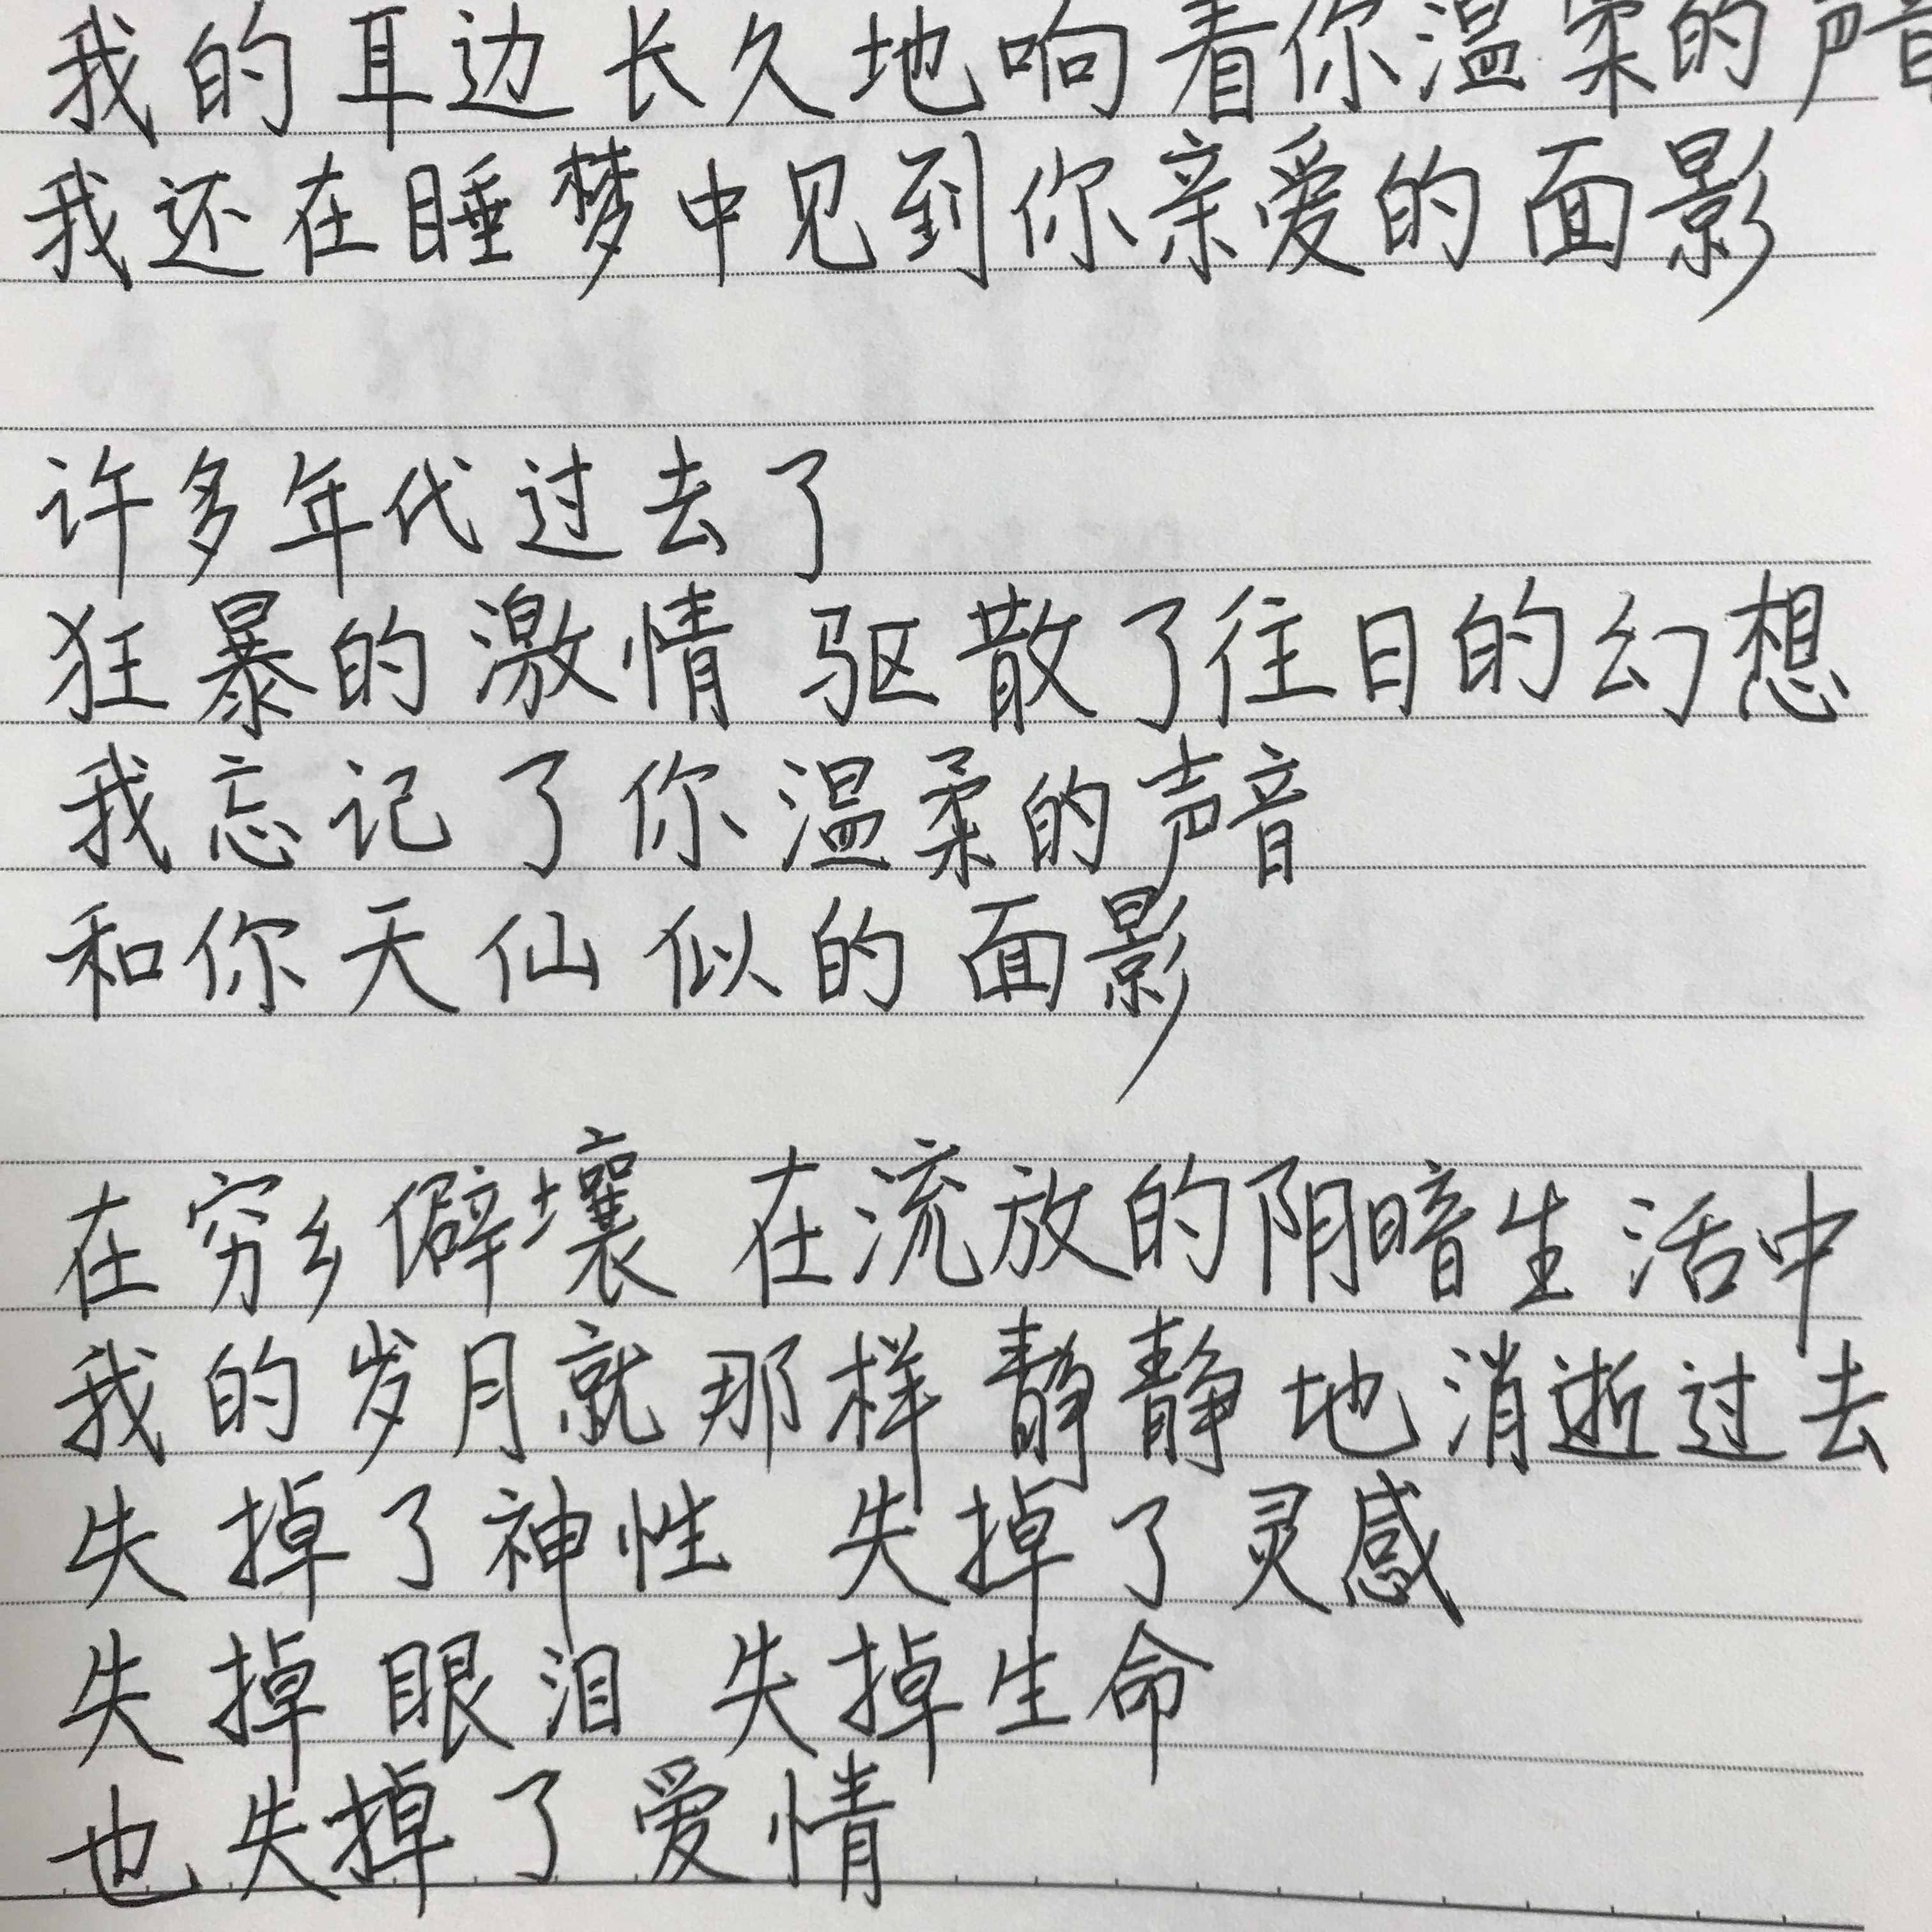 我的耳边长久地响着你温柔的声音
我还在睡梦中见到你亲爱的面影
许多年代过去了
狂暴的激情 驱散了往日的幻想
我忘记了你温柔的声音
和你天仙似的面影
在穷乡僻壤 在流放的阴暗生活中
我的岁月就那样静静地消逝过去
失掉了神性 失掉了灵感
失掉眼泪 失掉生命
也失掉了爱情